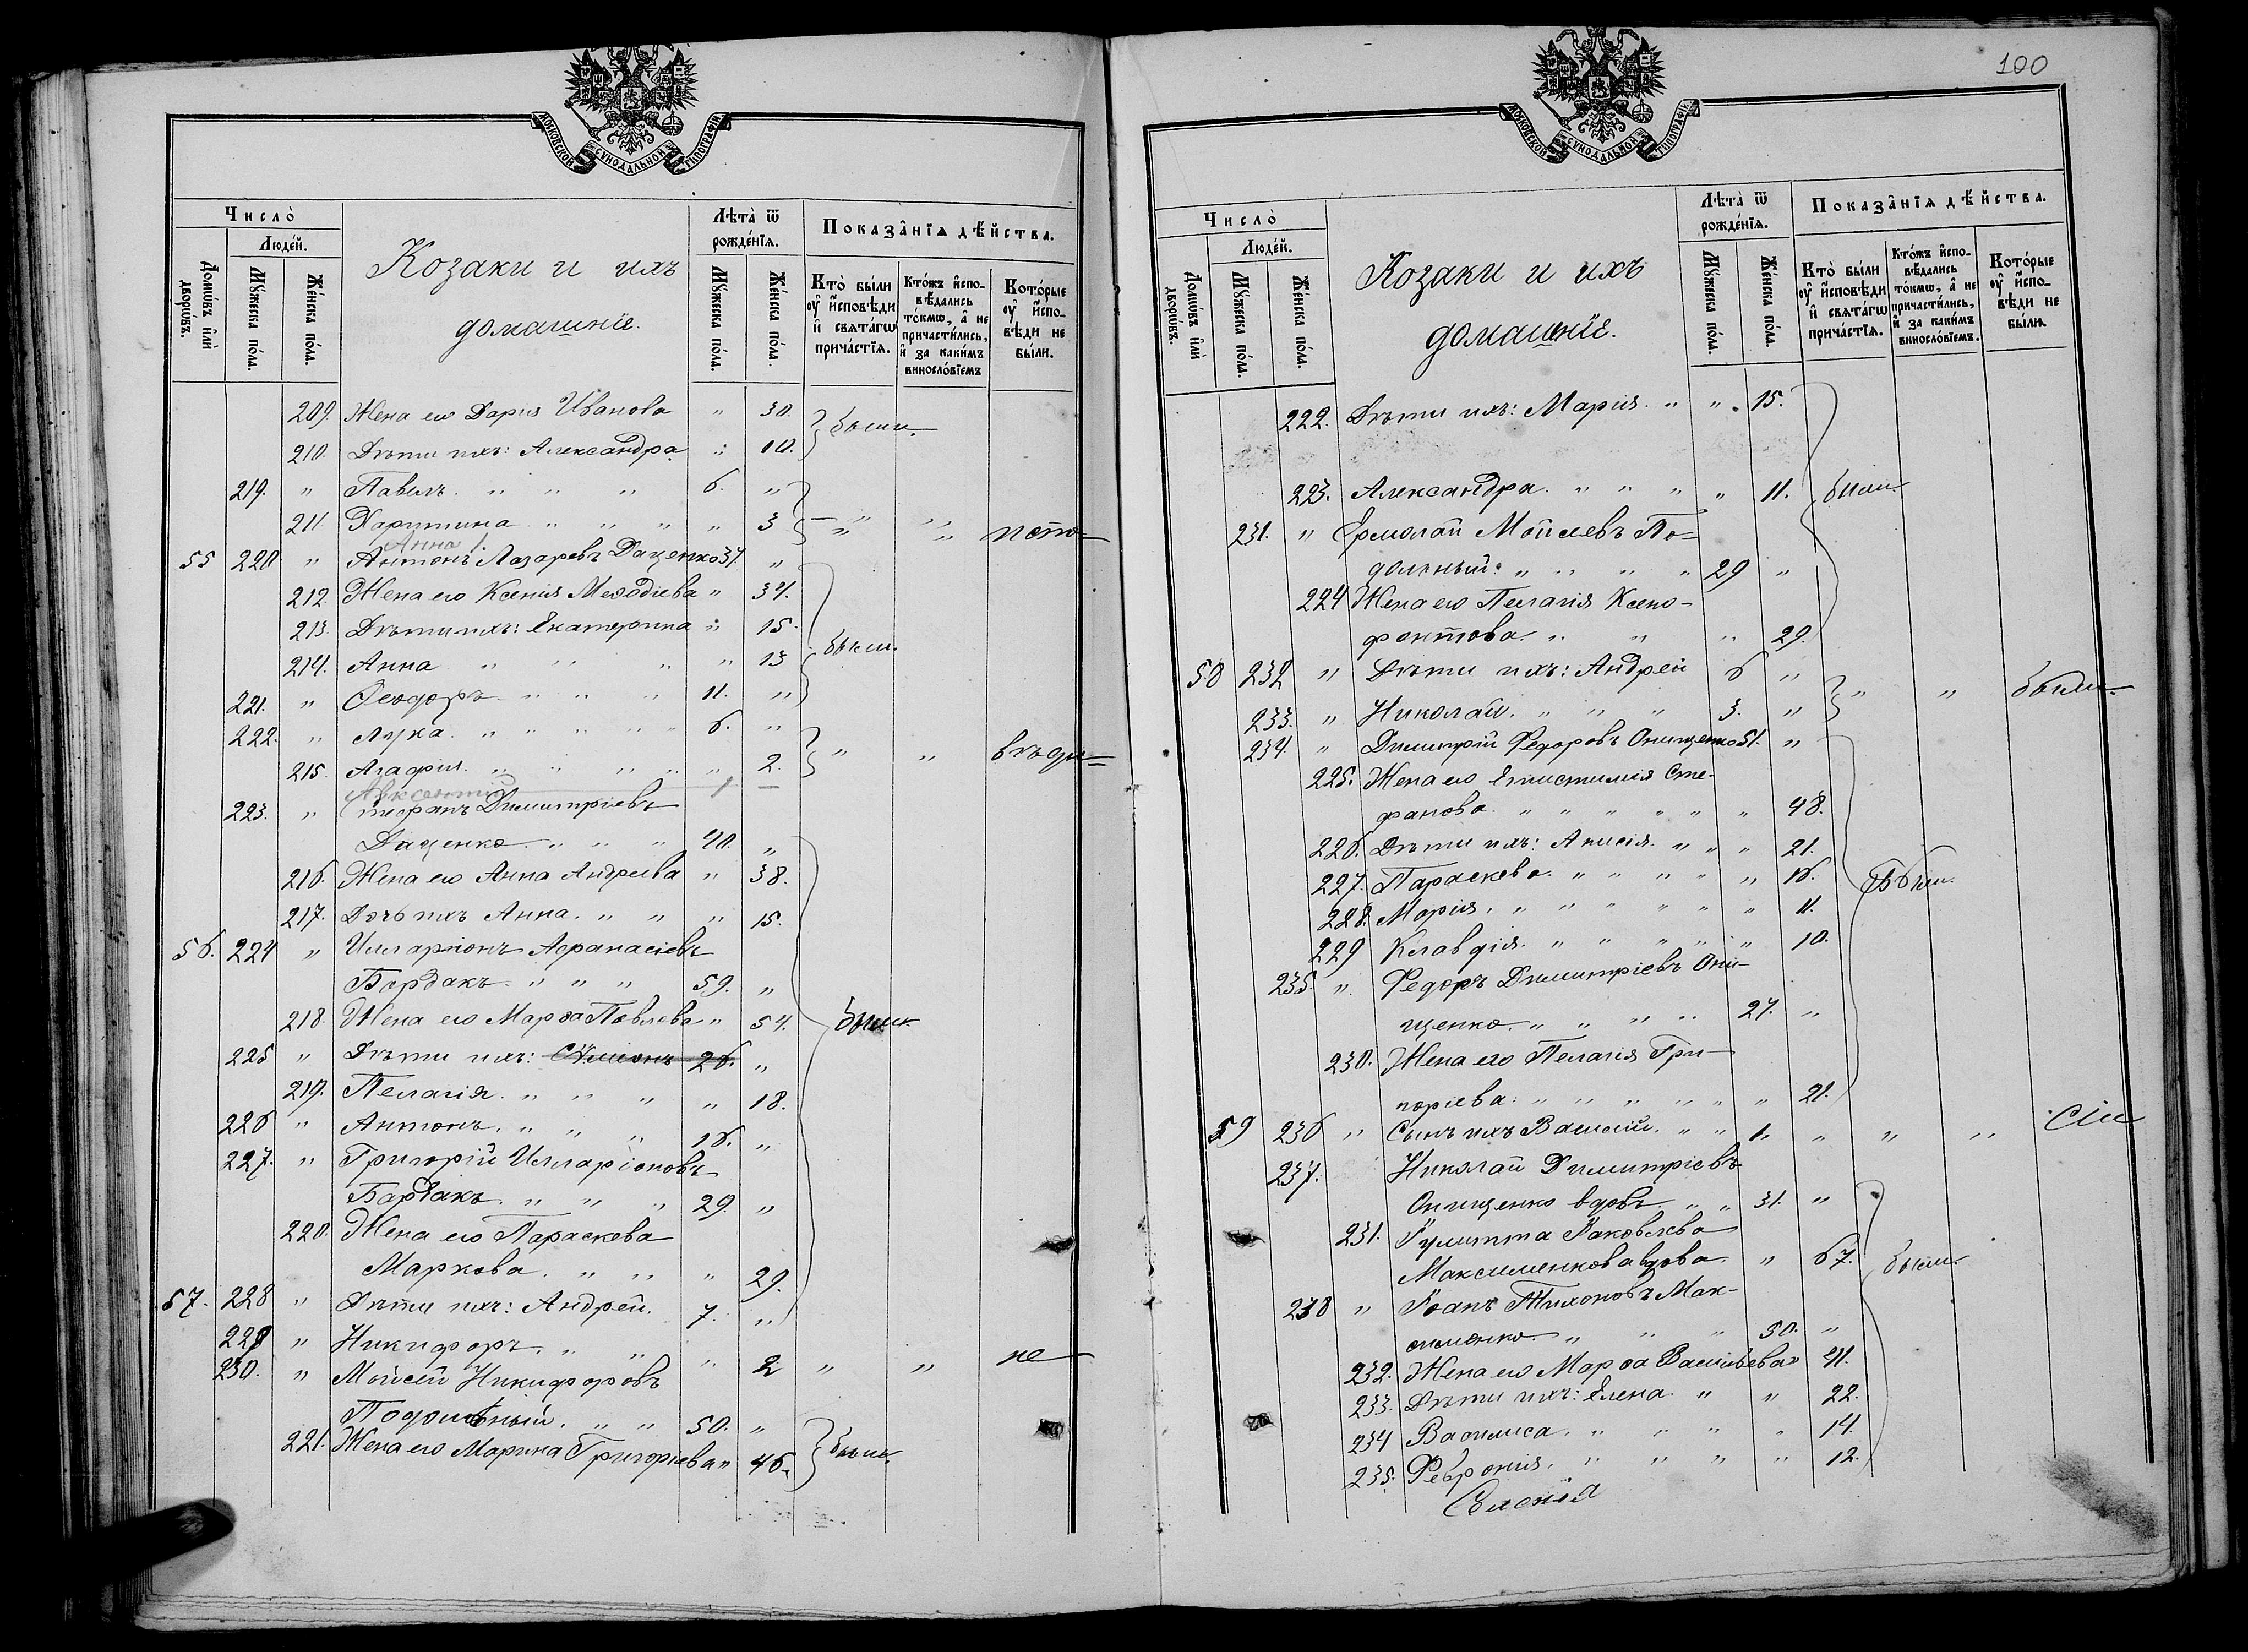 МОСКОВСКОЙ СУНОДАЛЬНОЙ ТИПОГРАФІИ
Число̀
Люде́й.
Домѡ́въ и҆лѝ дворѡ́въ.
Мꙋ́жеска по́ла.
Же́нска по́ла.
Козаки и ихъ
домашніе.
Лѣта̀ ѿ рожде́нїѧ.
Мꙋ́жеска по́ла.
Же́нска по́ла.
Показа̂нїѧ дѣ́йства.
Кто̀ бы́ли ᲂу҆ и҆сповѣ́ди и҆ свѧта́гѡ прича́стїѧ.
Кто́жъ и҆спо-вѣ́дались то́кмѡ, а҆ не причасти́лись, и҆ за каки́мъ винослᲂ́вїемъ
Кото́рые ᲂу҆ и҆спо-вѣ́ди не бы́ли.
209. Жена его Дарія Иванова " 30.
были.
210. Дѣти ихъ: Александра " 10.
219. " Павелъ. " " " 6. "
211. Харитина " " " " 3 " " испо-
Анна 1.
55 220 " Антонъ Лазаревъ Даценко 37. "
212. Жена его Ксенія Меѳодіева " 37.
213. Дѣти ихъ: Екатерина " 15.
были.
214. Анна " " " " 13
221. " Ѳеодоръ " " " 11. "
222. " Лука. " " " " 6. "
215. Агафія. " " " " " 2. " " вѣди-
Авксентій 1 —
223. " Димитріевъ
Даценко. " " " 40. "
216. Жена его Анна Андреева " 38.
217. Дочь ихъ Анна. " " " 15.
56. 224 " Илларіонъ Аѳанасіевъ
Бардакъ. " " " 59. "
218. Жена его Марѳа Павлова " 54. были.
225 " Дѣти ихъ: Симеонъ 26. "
219. Пелагія. " " " " 18.
226 " Антонъ. " " " 16. "
227. " Григорій Илларіоновъ
Бардакъ. " " " 29. "
220. Жена его Параскева
Маркова. " " " 29.
57. 228 " Дѣти ихъ: Андрей. 7. "
229 " Никифоръ. " " " 2 " " не
230. " Моисей Никифоровъ
Подольный. " " 50. "
221. Жена его Марина Григоріева " 46. были.
100
МОСКОВСКОЙ СУНОДАЛЬНОЙ ТИПОГРАФІИ
Число̀
Люде́й.
Домѡ́въ и҆лѝ дворѡ́въ.
Мꙋ́жеска по́ла.
Же́нска по́ла.
Козаки и ихъ
домашніе.
Лѣта̀ ѿ рожде́нїѧ.
Мꙋ́жеска по́ла.
Же́нска по́ла.
Показа̂нїѧ дѣ́йства.
Кто̀ бы́ли ᲂу҆ и҆сповѣ́ди и҆ свѧта́гѡ прича́стїѧ.
Кто́жъ и҆спо-вѣ́дались то́кмѡ, а҆ не причасти́лись, и҆ за каки́мъ винослᲂ́вїемъ.
Кото́рые ᲂу҆ и҆спо-вѣ́ди не бы́ли.
222. Дѣти ихъ: Марія. " " 15.
223. Александра. " " " " 11. были.
231. " Ермолай Мойсеевъ По-
дольный. " " " " 29 "
224 Жена его Пелагія Ксено-
фонтова. " " " 29.
58 232 " Дѣти ихъ: Андрей 6 "
" " были.
233. " Николай. " " " 3. "
234. " Димитрій Ѳедоровъ Онищенко 51. "
225. Жена его Епистимія Сте-
фанова. " " " " " " 48.
226. Дѣти ихъ: Анисія. " " " 21.
227. Параскева. " " " " " 16. были.
228. Марія. " " " " " " 11.
229 Клавдія. " " " " " 10.
235. " Ѳедоръ Димитріевъ Они-
щенко. " " " " 27. "
230. Жена его Пелагія Гри-
горіева. " " " " " " " 21.
59 236 " Сынъ ихъ Василій. " " 1. " " "
237. Николай Димитріевъ
Онищенко вдовъ. " " 31. "
231. Іулитта Іаковлева
Максименкова вдова. " 67. были.
238 " Іоанъ Тихоновъ Мак-
сименко. " " " 50. "
232. Жена его Марѳа Васильева " 41.
233. Дѣти ихъ: Елена " " 22.
234 Василиса. " " " " 14.
235. Февронія. " " " " 12.